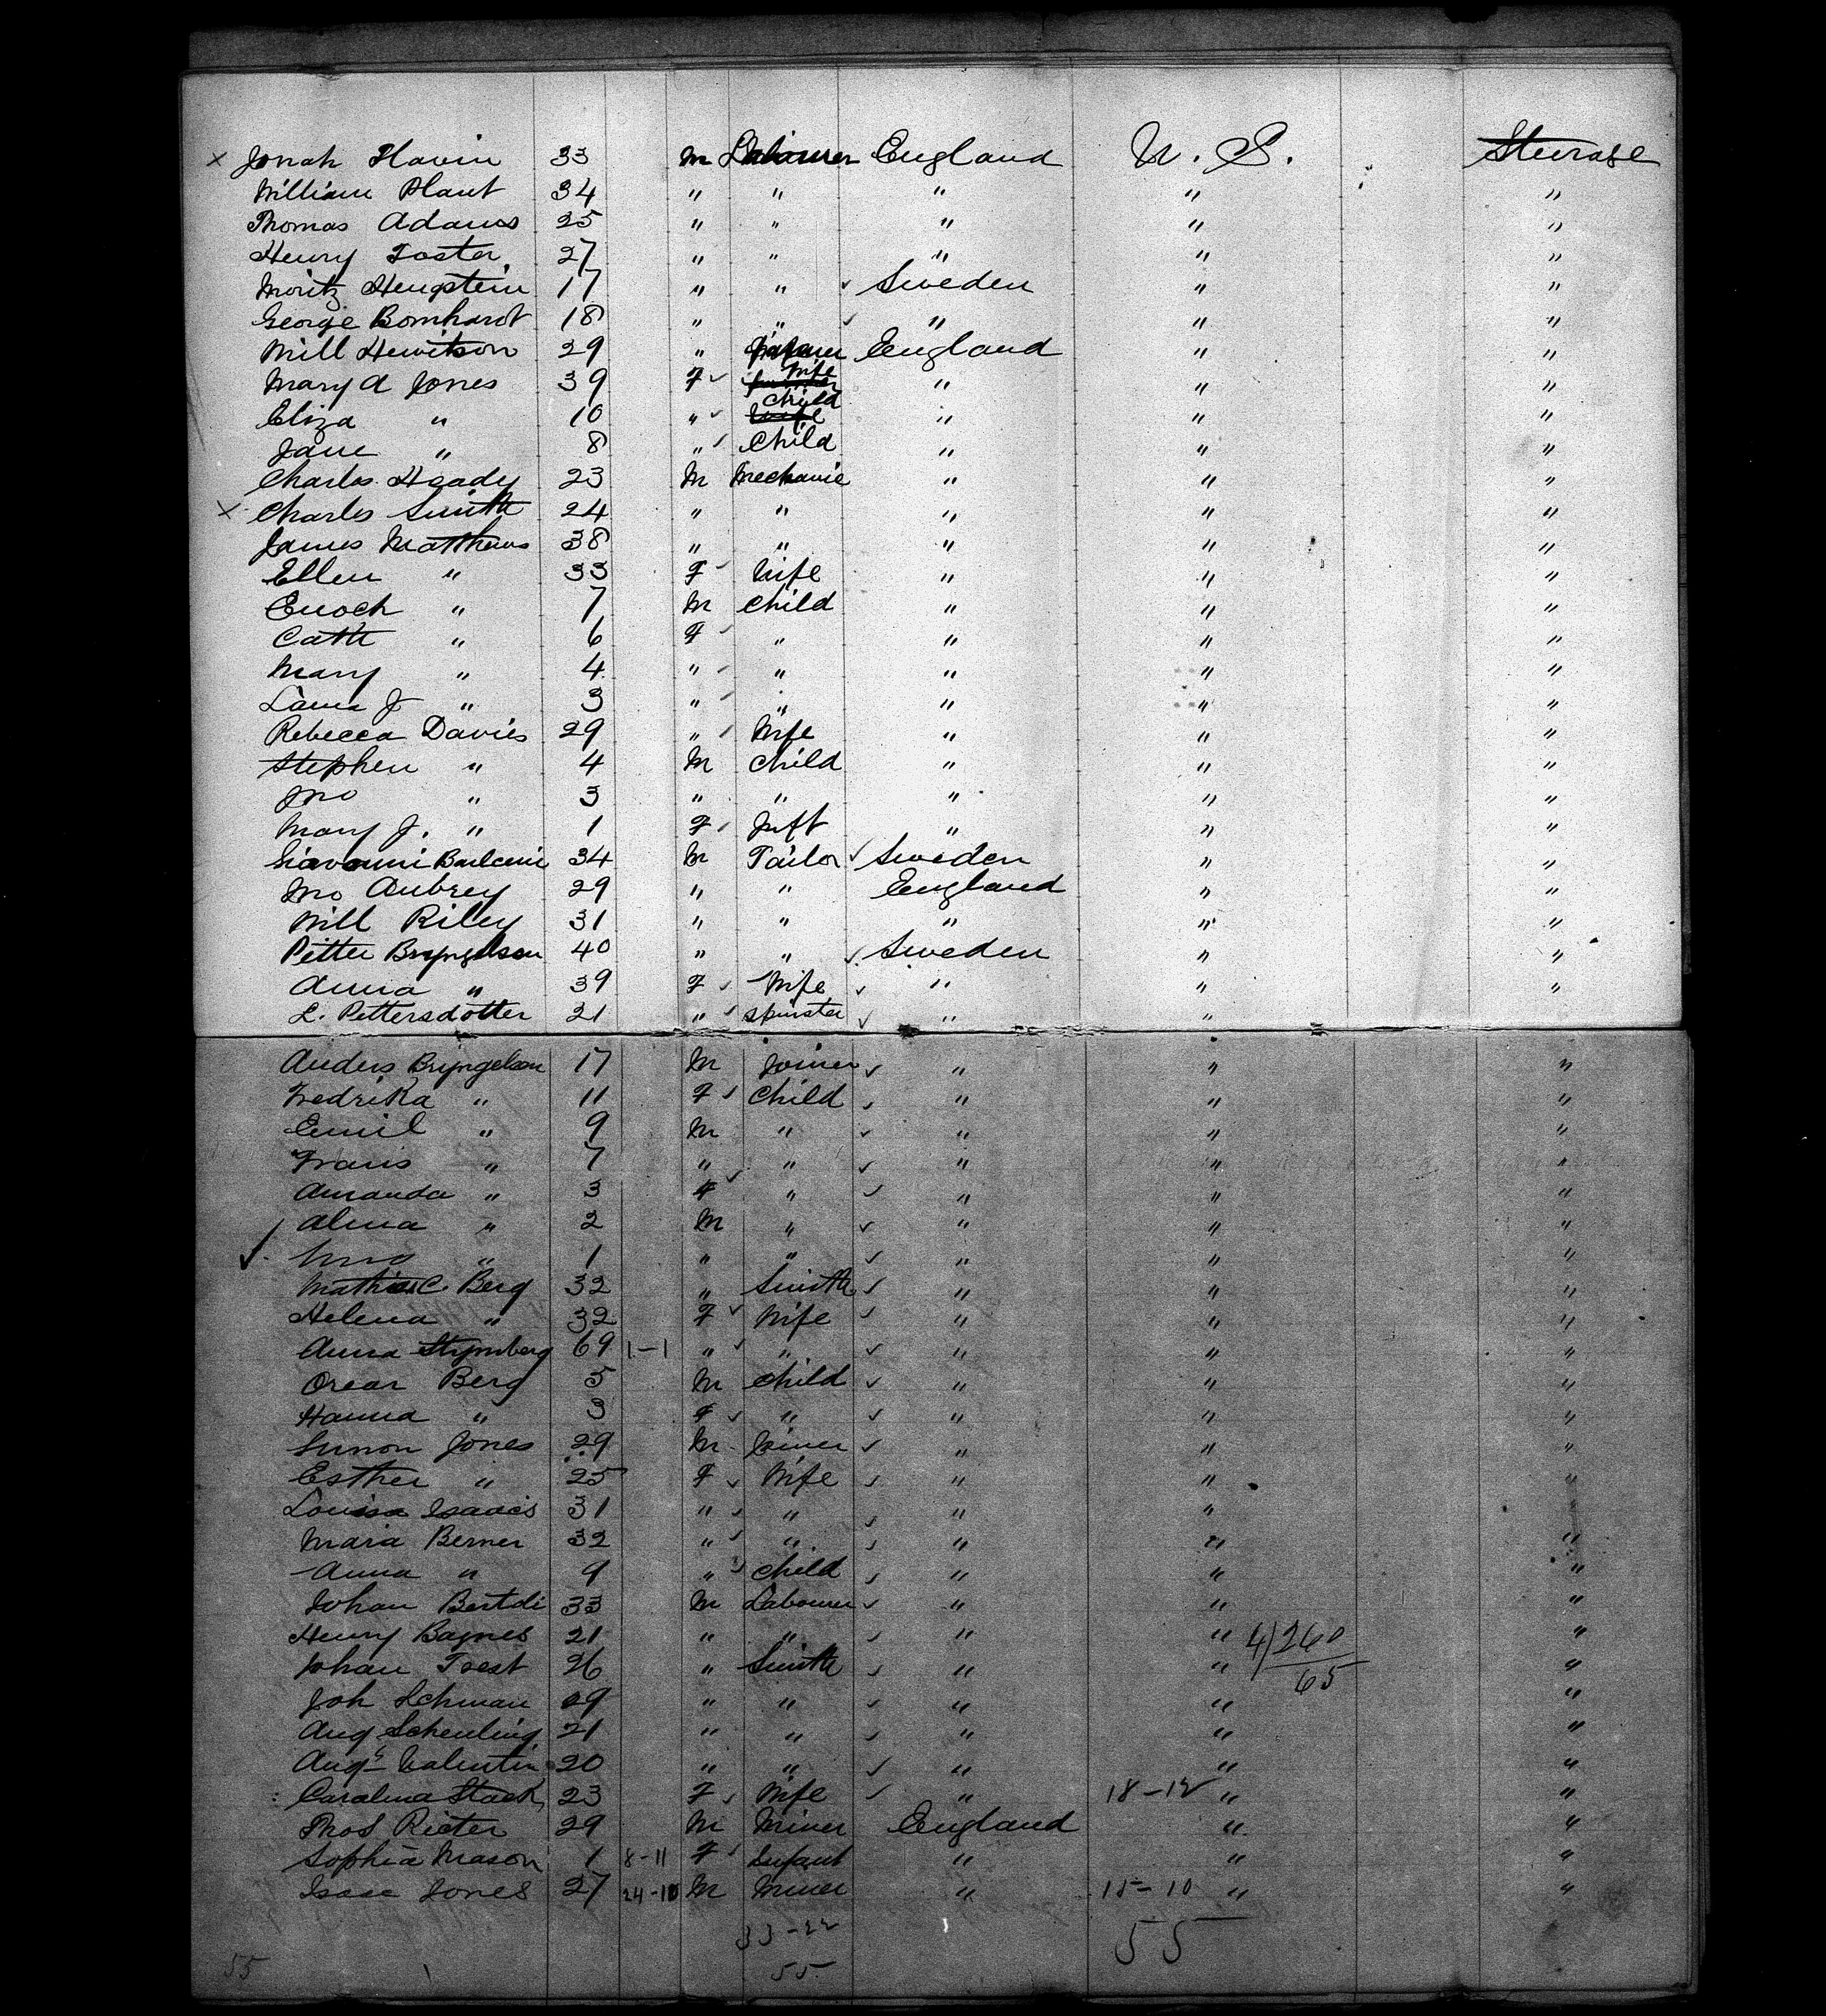 x Jonah Flavin 33 m Labourer England U. S. Steerage
William Plant 34 " " " " "
Thomas Adams 25 " " " " "
Henry Foster 27 " " " " "
Moritz Hengstein 17 " " ✓ Sweden " "
George Bomhardt 18 " " ✓ " " "
Will Hewitson 29 " England " "
Mary A Jones 39 F ✓ Wife " " "
Eliza " 10 " ✓ Child " " "
Jane " 8 " ✓ Child " " "
Charles Heady 23 M Mechanic " " "
x Charles Smith 24 " " " " "
James Matthews 38 " " " " "
Ellen " 33 F Wife " " "
Enoch " 7 M Child " " "
Cath " 6 F " " " "
Mary " 4 " " " " "
J " 3 " " " " "
Rebecca Davies 29 " Wife " " "
Stephen " 4 M Child " " "
Jno " 3 " " " " "
Mary J. " 1 F Inft " " "
Giavanni 34 M Tailor ✓ Sweden " "
Jno Aubrey 29 " " England " "
Will Riley 31 " " " " "
Petter Bryngelson 40 " " ✓ Sweden " "
Anna " 39 F ✓ Wife ✓ " " "
L. Pettersdotter 21 " ✓ Spinster ✓ " "
Anders Bryngelson 17 M Joiner ✓ " " "
Fredrika " 11 F ✓ Child ✓ " " "
Emil " 9 M " ✓ " " "
Frans " 7 " " ✓ " " "
Amanda " 3 F ✓ " ✓ " " "
Alma " 2 M " ✓ " " "
✓ " 1 " " ✓ " " "
C. Berg 32 " Smith ✓ " " "
Helena " 32 F ✓ Wife ✓ " " "
Anna 69 1-1 " ✓ " ✓ " " "
Oscar Berg 5 M Child ✓ " " "
Hanna " 3 F ✓ " ✓ " " "
Simon Jones 29 M Joiner ✓ " " "
Esther " 25 F ✓ Wife ✓ " " "
Louisa Isaacs 31 " ✓ " ✓ " "
Maria Berner 32 " ✓ " ✓ " " "
Anna " 9 " ✓ Child ✓ " " "
Johan 33 M Labourer ✓ " " "
Henry Bagnes 21 " " ✓ " " "
4/260
65
Johan Toest 26 " Smith ✓ " " "
Joh 29 " " ✓ " " "
Aug Scheuling 21 " " ✓ " " "
Aug Valentin 20 " " ✓ " " "
Carolina Stack 23 F ✓ Wife ✓ " 18-12 " "
Thos Rieter 29 M Miner England " "
Sophia Mason 1 8-11 F ✓ Infant " " "
Isaac Jones 27 24-10 M Miner " 15-10 " "
33-22
55
55 55